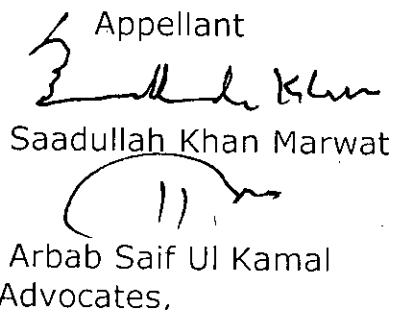 Appellant
Khan
Saadullah Khan Marwat
Arbab Saif Ul Kamal
Advocates,